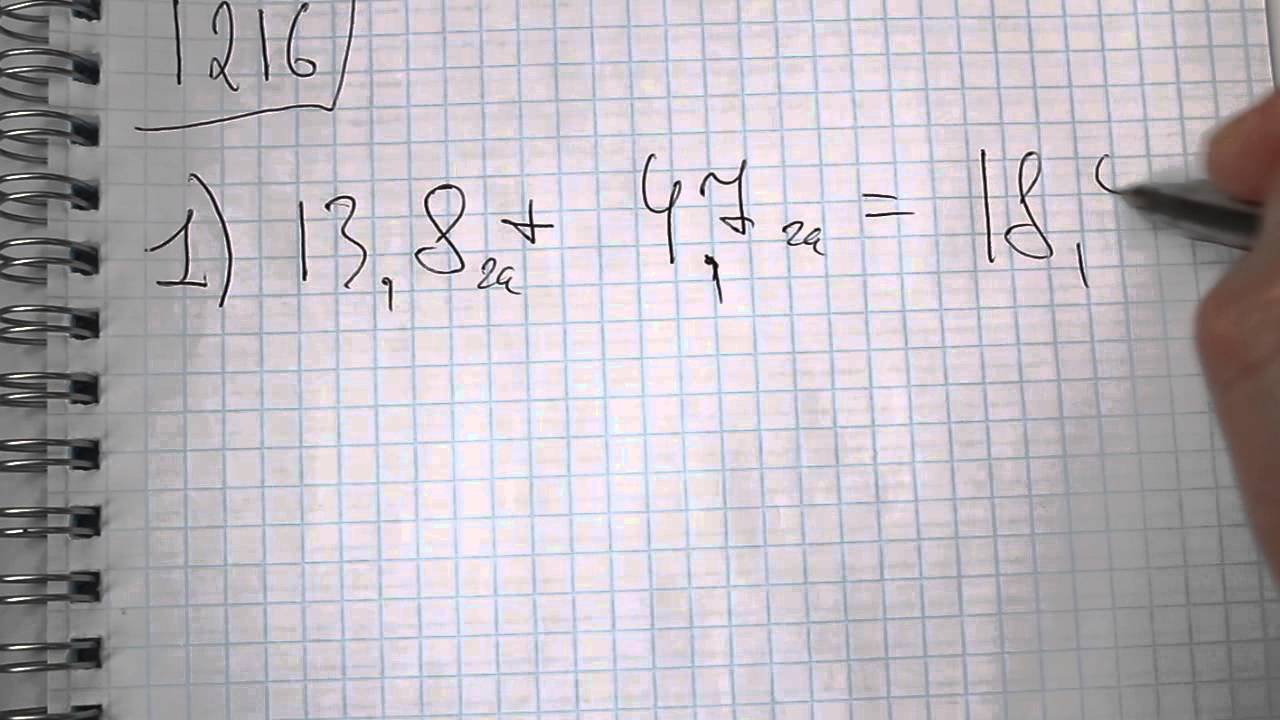 1216
1) 13,8 га + 4,7 га = 18,